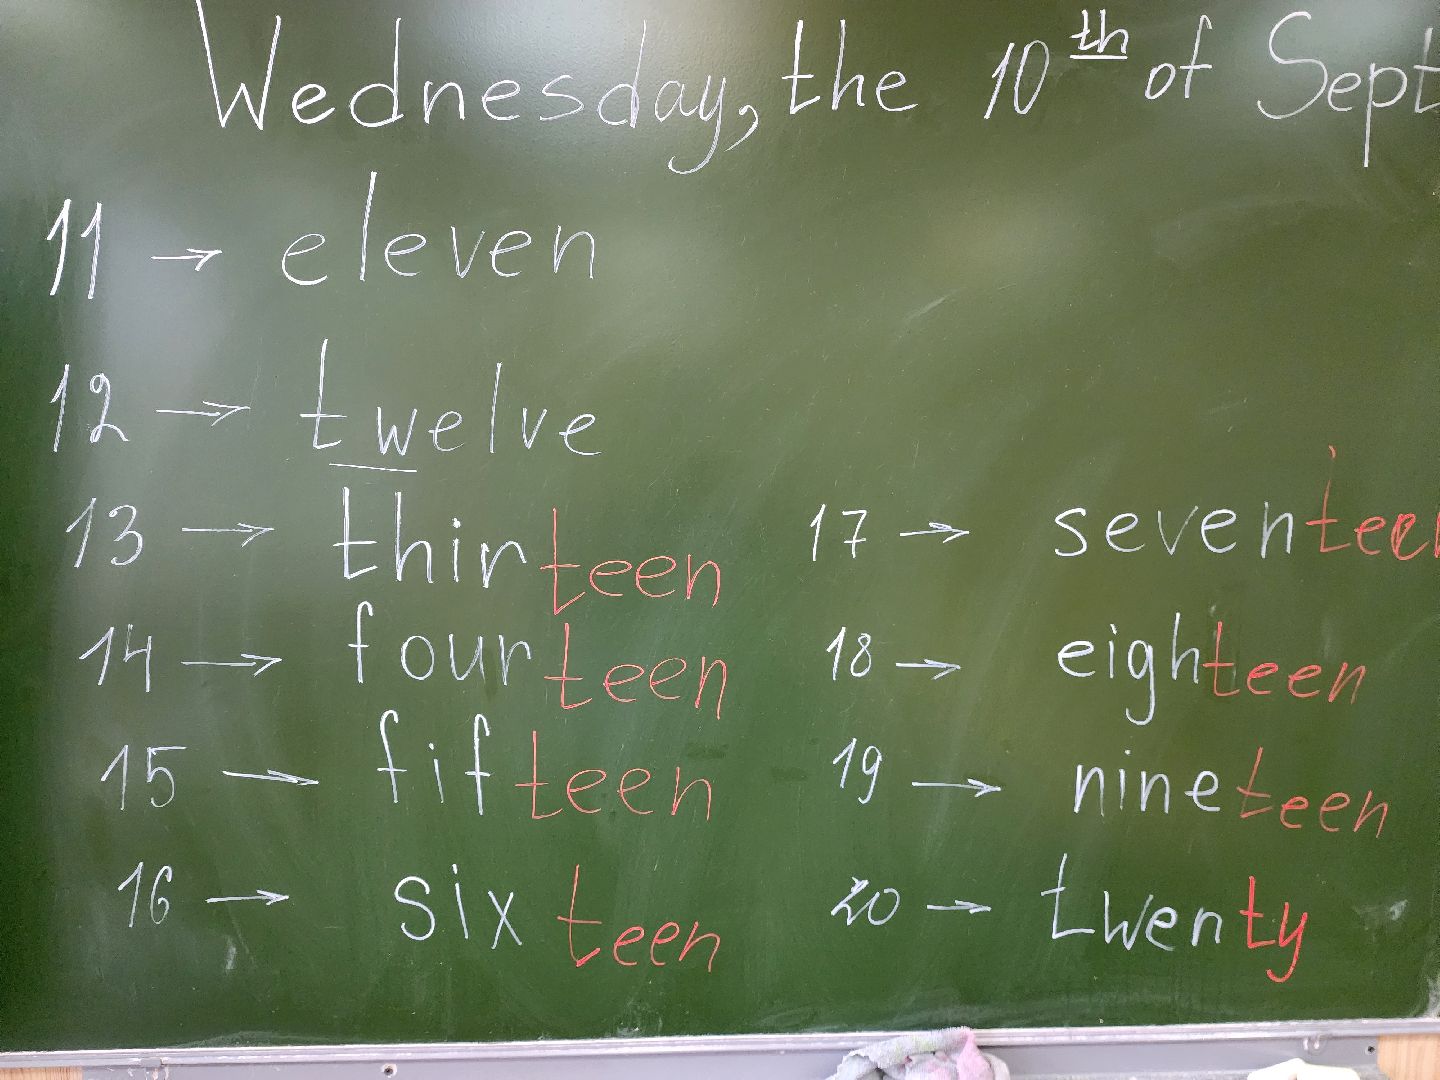 Wednesday, the 10th of Sept
11 → eleven
12 → twelve
13 → thirteen
14 → fourteen
15 → fifteen
16 → sixteen
17 → seventeen
18 → eighteen
19 → nineteen
20 → twenty